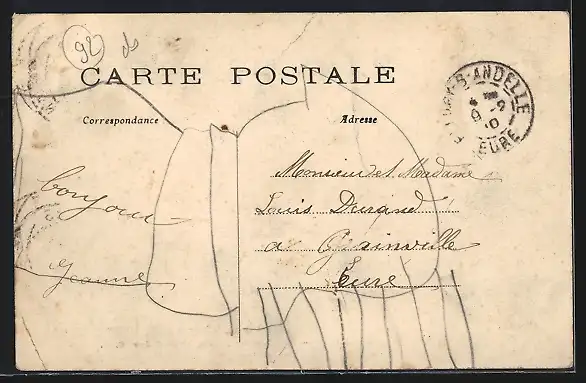 92
CARTE POSTALE
Correspondance
Adresse
bonjour
Jeanne
Monsieur et Madame
Louis Durand
a Grainville
Eure
FLEURY-S-ANDELLE
9 -9
10
EURE